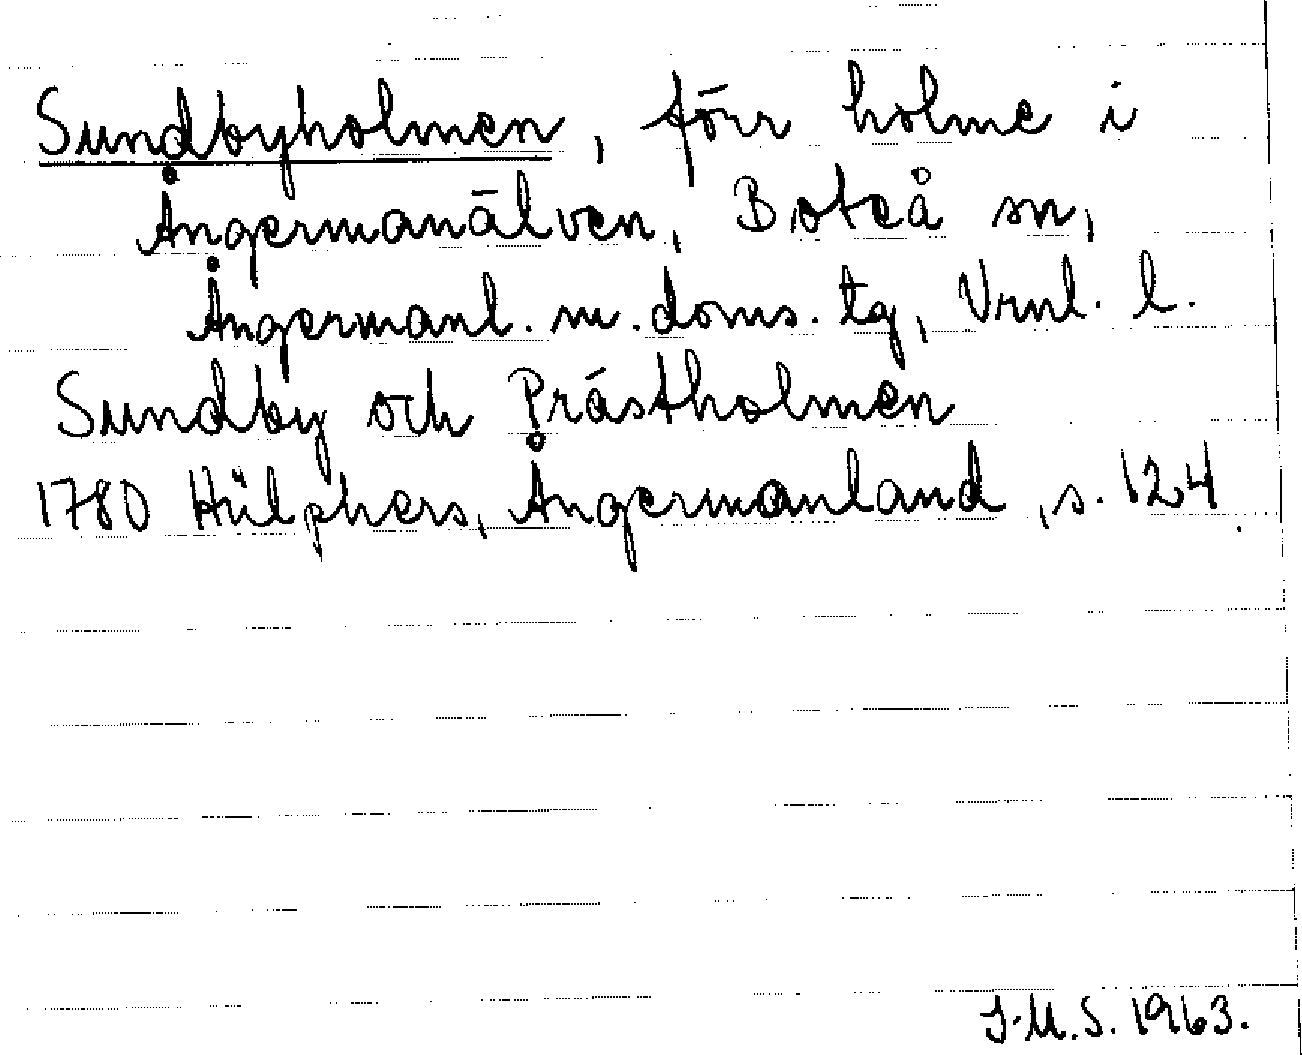 Sundbyholmen, förr holme i
Ångermanälven, Boteå sn,
Ångermanl. m. doms. tg, Vrnl. l.
Sundby och Prästholmen
1780 Hülphers, Ångermanland, s. 124.
J.M.S. 1963.